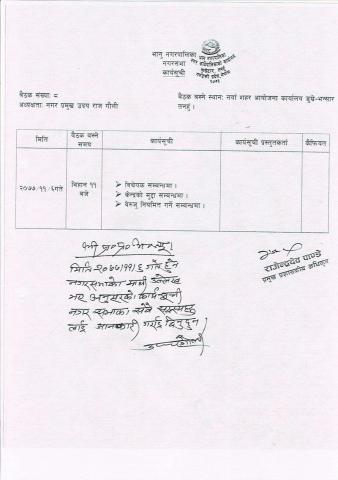 भानु नगरपालिका
नगरसभा
कार्यसूची
बैठक संख्याः ८
बैठक बस्ने स्थानः नयाँ शहर आयोजना कार्यालय डुम्रे-भन्सार
अध्यक्षताः नगर प्रमुख उदय राज गौली
तनहुँ ।
मिति
बैठक बस्ने समय
कार्यसूची
कार्यसूची प्रस्तुतकर्ता
कैफियत
२०७७/११/६गते
बिहान ११ बजे
➢ विधेयक सम्बन्धमा ।
➢ केन्द्रको मुद्दा सम्बन्धमा ।
➢ बेरुजु नियमित गर्ने सम्बन्धमा ।
मिति २०७७/११/६ गते हुने
नगरसभाको माथी उल्लेख
भए अनुसारको कार्य सूची
नगर सभाका सबै
लाई जानकारी गराई दिनुहुन
राजेन्द्रदेव पाण्डे
प्रमुख प्रशासकीय अधिकृत